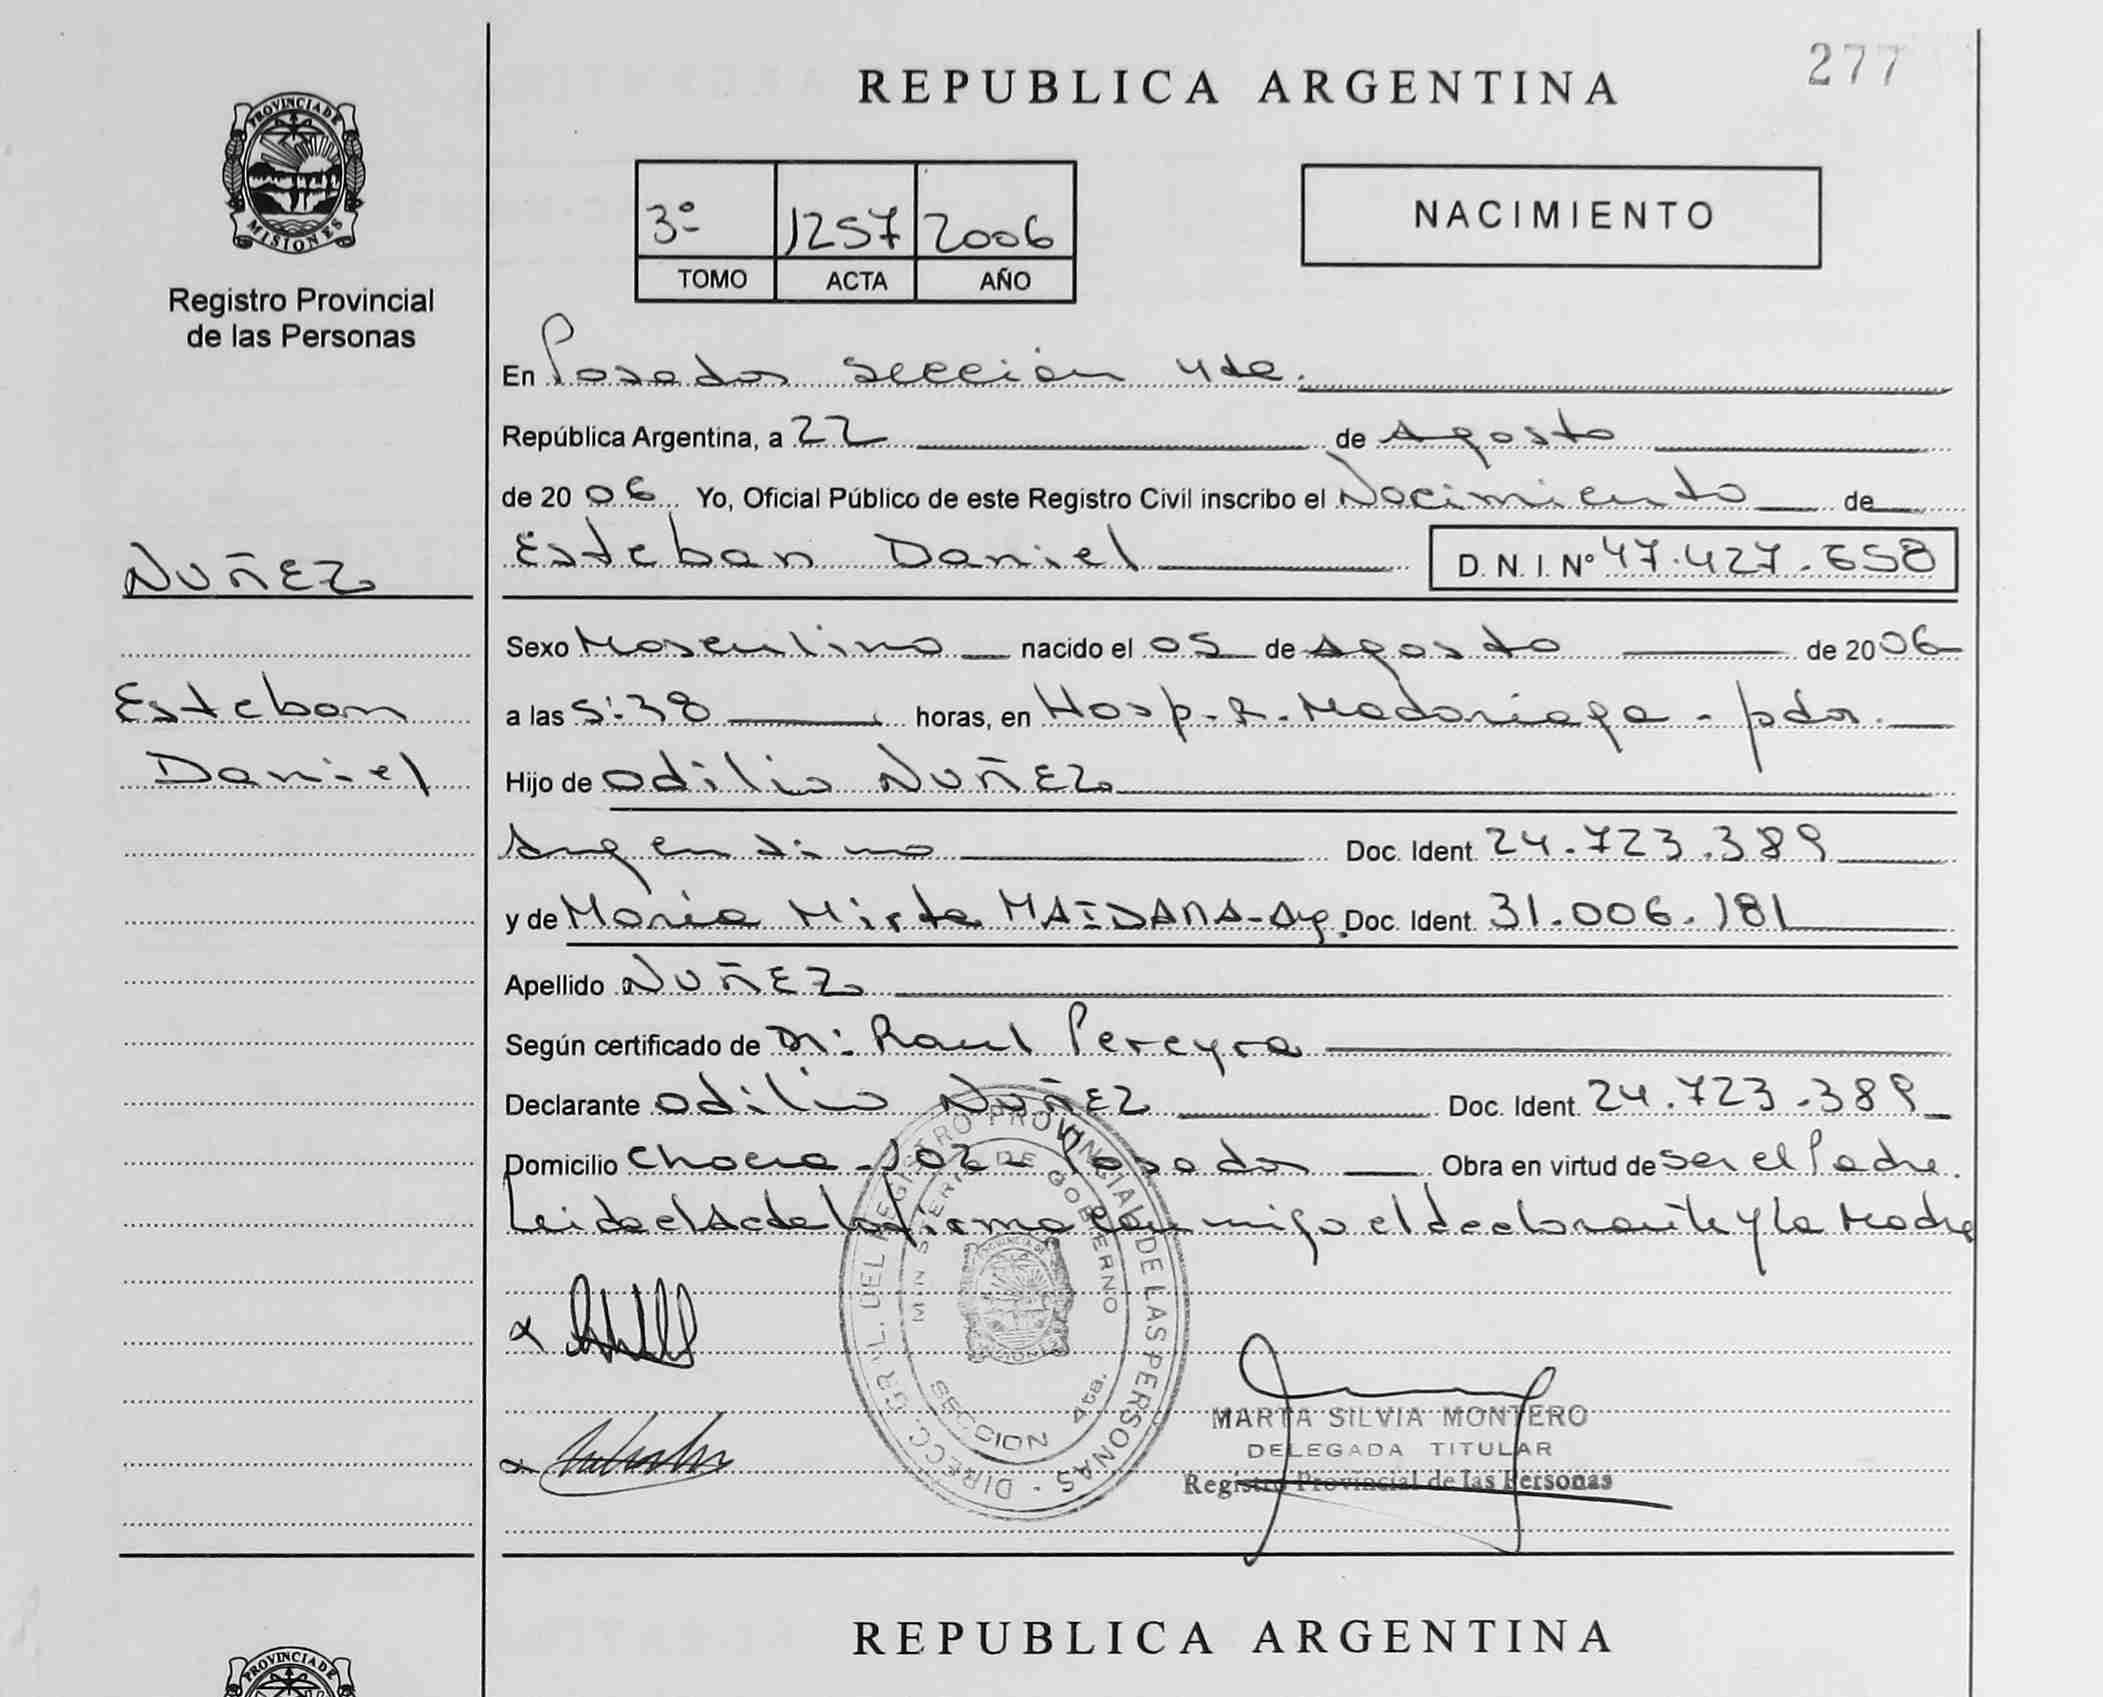 277
REPUBLICA ARGENTINA
PROVINCIA DE
MISIONES
Registro Provincial
de las Personas
3º 1257 2006
TOMO ACTA AÑO
NACIMIENTO
En Posadas sección 4ta.
República Argentina, a 22 de Agosto
de 2006 Yo, Oficial Público de este Registro Civil inscribo el Nacimiento de
Esteban Daniel D. N. I. Nº 47.427.658
NUÑEZ
Esteban
Daniel
Sexo Masculino nacido el 05 de Agosto de 2006
a las 5:38 horas, en Hosp. R. Madariaga - pdas.
Hijo de Odilio NUÑEZ
Argentino Doc. Ident. 24.723.389
y de María Mirta MAIDANA - Arg. Doc. Ident. 31.006.181
Apellido NUÑEZ
Según certificado de Dr: Raul Pereyra
Declarante Odilio NUÑEZ Doc. Ident. 24.723.389
Domicilio Chacra 102 - Posadas Obra en virtud de ser el Padre.
Leida el Acta la firma conmigo el declarante y la Madre
DIRECC. GRAL. DEL REGISTRO PROVINCIAL DE LAS PERSONAS
MINISTERIO DE GOBIERNO
SECCION 4ta.
MARTA SILVIA MONTERO
DELEGADA TITULAR
Registro Provincial de las Personas
REPUBLICA ARGENTINA
PROVINCIA DE